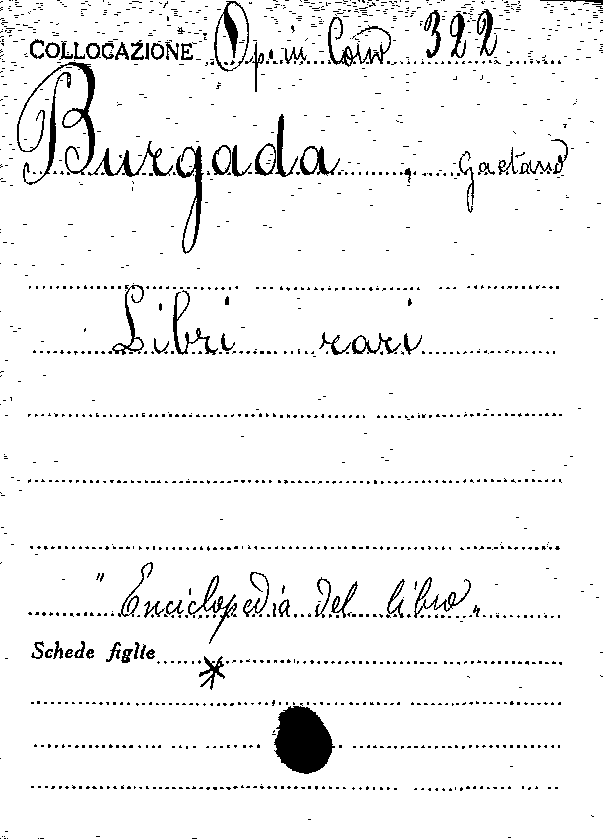 COLLOCAZIONE Op. in Cons 322
Burgada, Gaetano
Libri rari
"Enciclopedia del libro"
Schede figlie